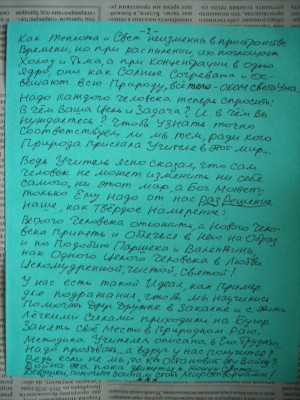 -2-
Как Теплота и Свет неизменна в пространстве
Времени, но при распылении, их поглощает
Холод и Тьма, а при концентрации в одно
Ядро, они как Солнце Согревают и Ос-
вещают всю Природу, всё тело - оком света Ума.
Надо Каждого человека теперь спросить:
В чём Ваша Цель и Задача? И в чём Вы
Нуждаетесь? Чтобы узнать точно
Соответствуем ли мы тем, ради кого
Природа Прислала Учителя в этот мир...
Ведь Учитель ясно сказал, что сам
человек не может изменить ни себя
самого, ни этот мир, а Бог Может-
только Ему надо от нас разрешение
Наше, как Твёрдое Намерение!
Ветхого Человека отложить, а Нового Чело-
века Принять и Облечся в Него на Образ
и по Подобию Паршека и Валентины
как Одного Целого Человека в Любви
Целомудренной, Чистой, Святой!
У нас есть такой Идеал, как Пример
для подражания, чтоб мы научились
Помогать Друг Дружке в Закалке и с этими
Лёгкими Силами приходить на Бугор
Занять своё Место в Природном Раю.
Методика Учителем описана в Его Трудах,
Надо пробовать, а вдруг у нас получится?
Ведь если не мы, то кто остановит эту Войну?
Война эта пока движется к Концу Света.